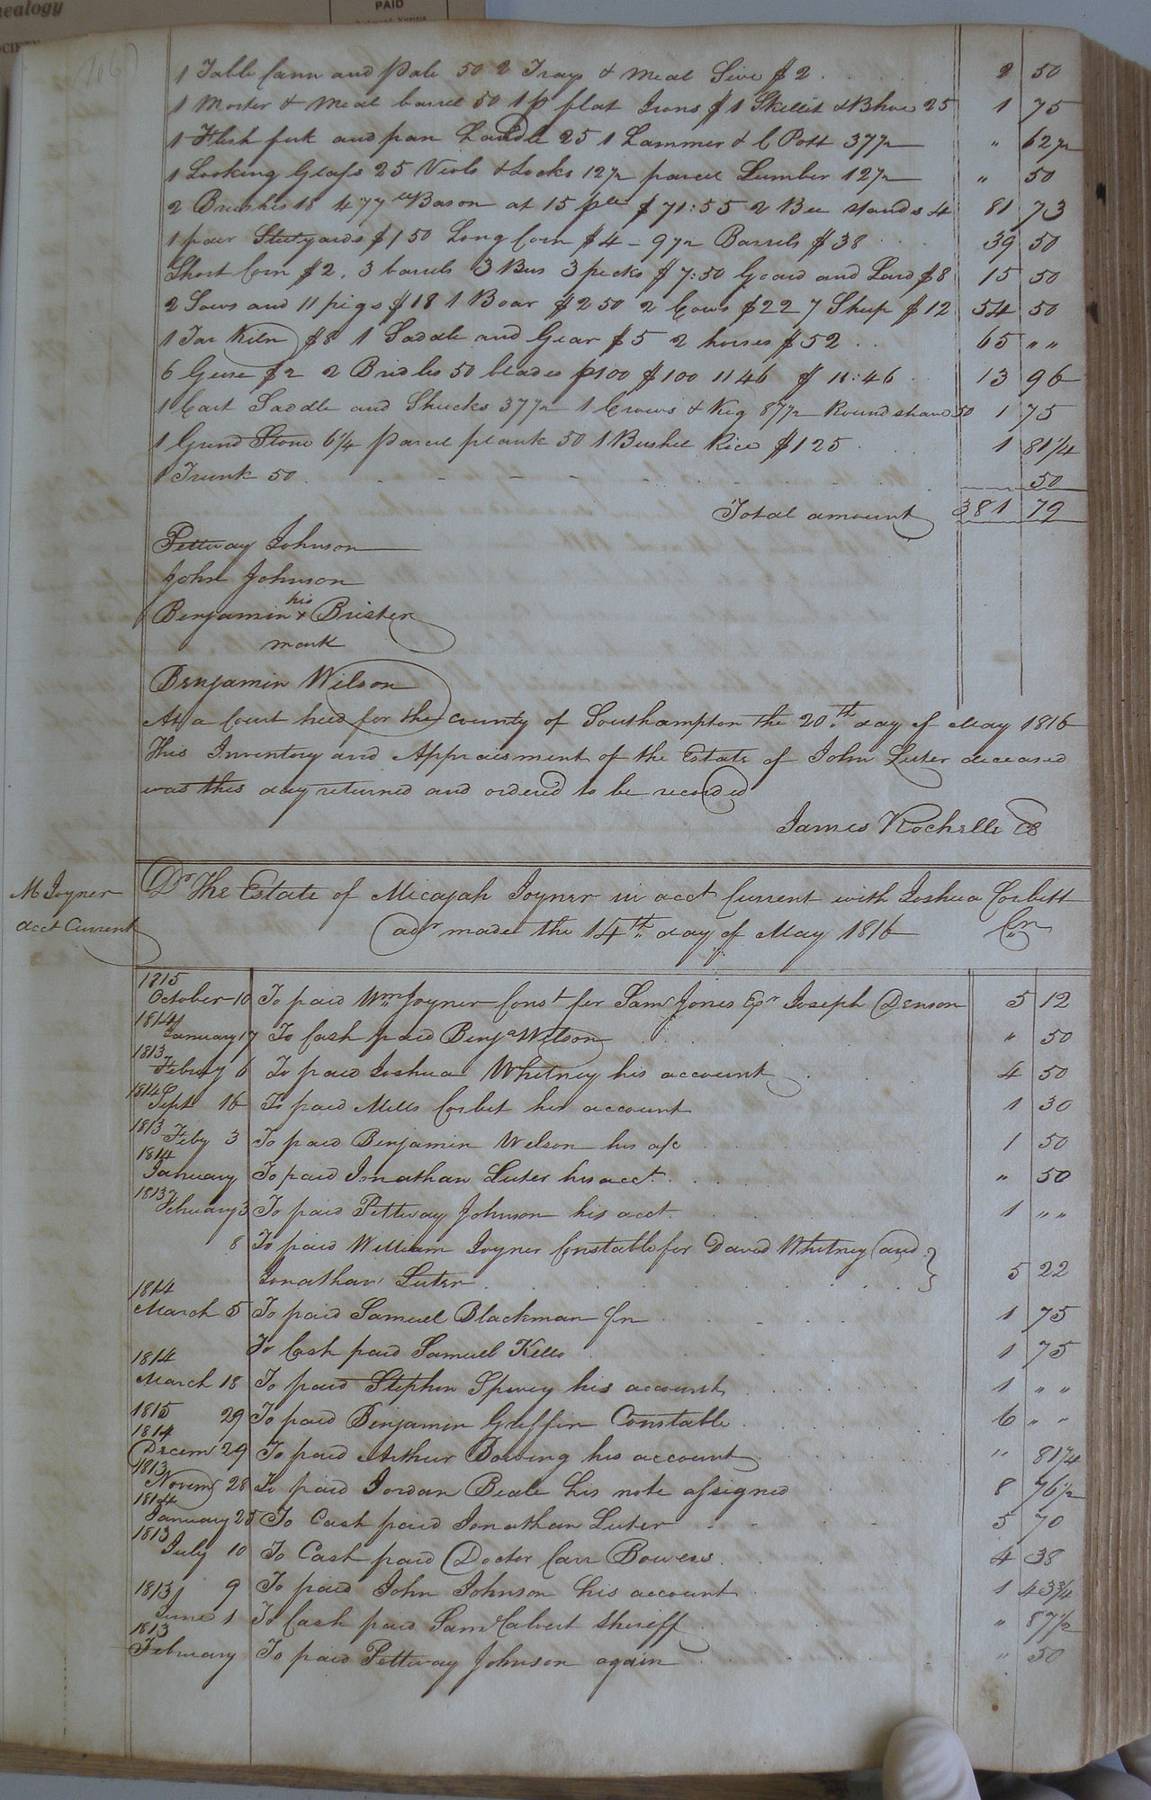 nealogy
PAID
SOCIETY
1 Table Cann and Pale 50 2 Trays & Meal Sive $2 2 50
1 Morter & Meal barrel 50 1 pr flat Irons $1 Skellit & 25 1 75
1 Flesh fork and pan Laddle 25 1 Hammer & C Pott 37½ " 62½
1 Looking Glass 25 Viols & Locks 12½ parcel Lumber 12½ " 50
2 Brushes 18 477 lb Bason at 15 $71:55 2 Bee stands 4 81 73
1 pair Steelyards $1 50 Long Corn $4 - 9½ Barrels $38 39 50
Short Corn $2. 3 barrels 3 Bus 3 pecks $7:50 Goard and Lard $8 15 50
2 Sows and 11 pigs $18 1 Boar $2 50 2 Cows $22 7 Sheep $12 54 50
1 Tar Kiln $8 1 Saddle and Gear $5 2 horses $52 65 " "
6 Geese $2 2 Bridles 50 blades p100 $100 1146 $11:46 13 96
1 Cart Saddle and Shucks 37½ 1 & Keg 87½ Round shave 50 1 75
1 Grind Stone 6¼ parcel plank 50 1 Bushel Rice $1 25 1 81¼
1 Trunk 50 50
Total amount 381 79
Pettway Johnson
John Johnson
his
Benjamin x Brister
mark
Benjamin Wilson
At a Court held for the county of Southampton the 20th day of May 1816
This Inventory and Appraisment of the Estate of John Luter deceased
was this day returned and ordered to be recorded
James Rochelle CC
M Joyner
acct Current
Dr The Estate of Micajah Joyner in acct Current with Joshua Corbett
adr made the 14th day of May 1816 Cr
1815
October 10 To paid Wm Joyner Const for Saml Jones Exr Joseph Denson 5 12
1814
January 17 To Cash paid Benja Wilson " 50
1813
Febuy 6 To paid Joshua Whitney his account 4 50
1814
Sept 16 To paid Mills Corbet his account 1 30
1813 Feby 3 To paid Benjamin Wilson his a/c 1 50
1814
January To paid Jonathan Luter his acct " 50
1813
February 3 To paid Pettway Johnson his acct 1 " "
8 To paid William Joyner Constable for David Whitney and
Jonathan Luter 5 22
1814
March 5 To paid Samuel Blackman Jn 1 75
To Cash paid Samuel Kello 1 75
1814
March 18 To paid Stephen Spivey his account 1 " "
1815 29 To paid Benjamin Griffin Constable 6 " "
1814
Decem 29 To paid Arthur Bowing his account " 81¼
1813
Novem 28 To paid Jordan Beale his note assigned 8 76½
1814
January 25 To Cash paid Jonathan Luter 5 70
1813
July 10 To Cash paid Doctor Carr Bowers 4 38
1813 9 To paid John Johnson his account 1 43¾
June 1 To Cash paid Saml Calvert Sheriff " 87½
1813
February To paid Pettway Johnson again " 50